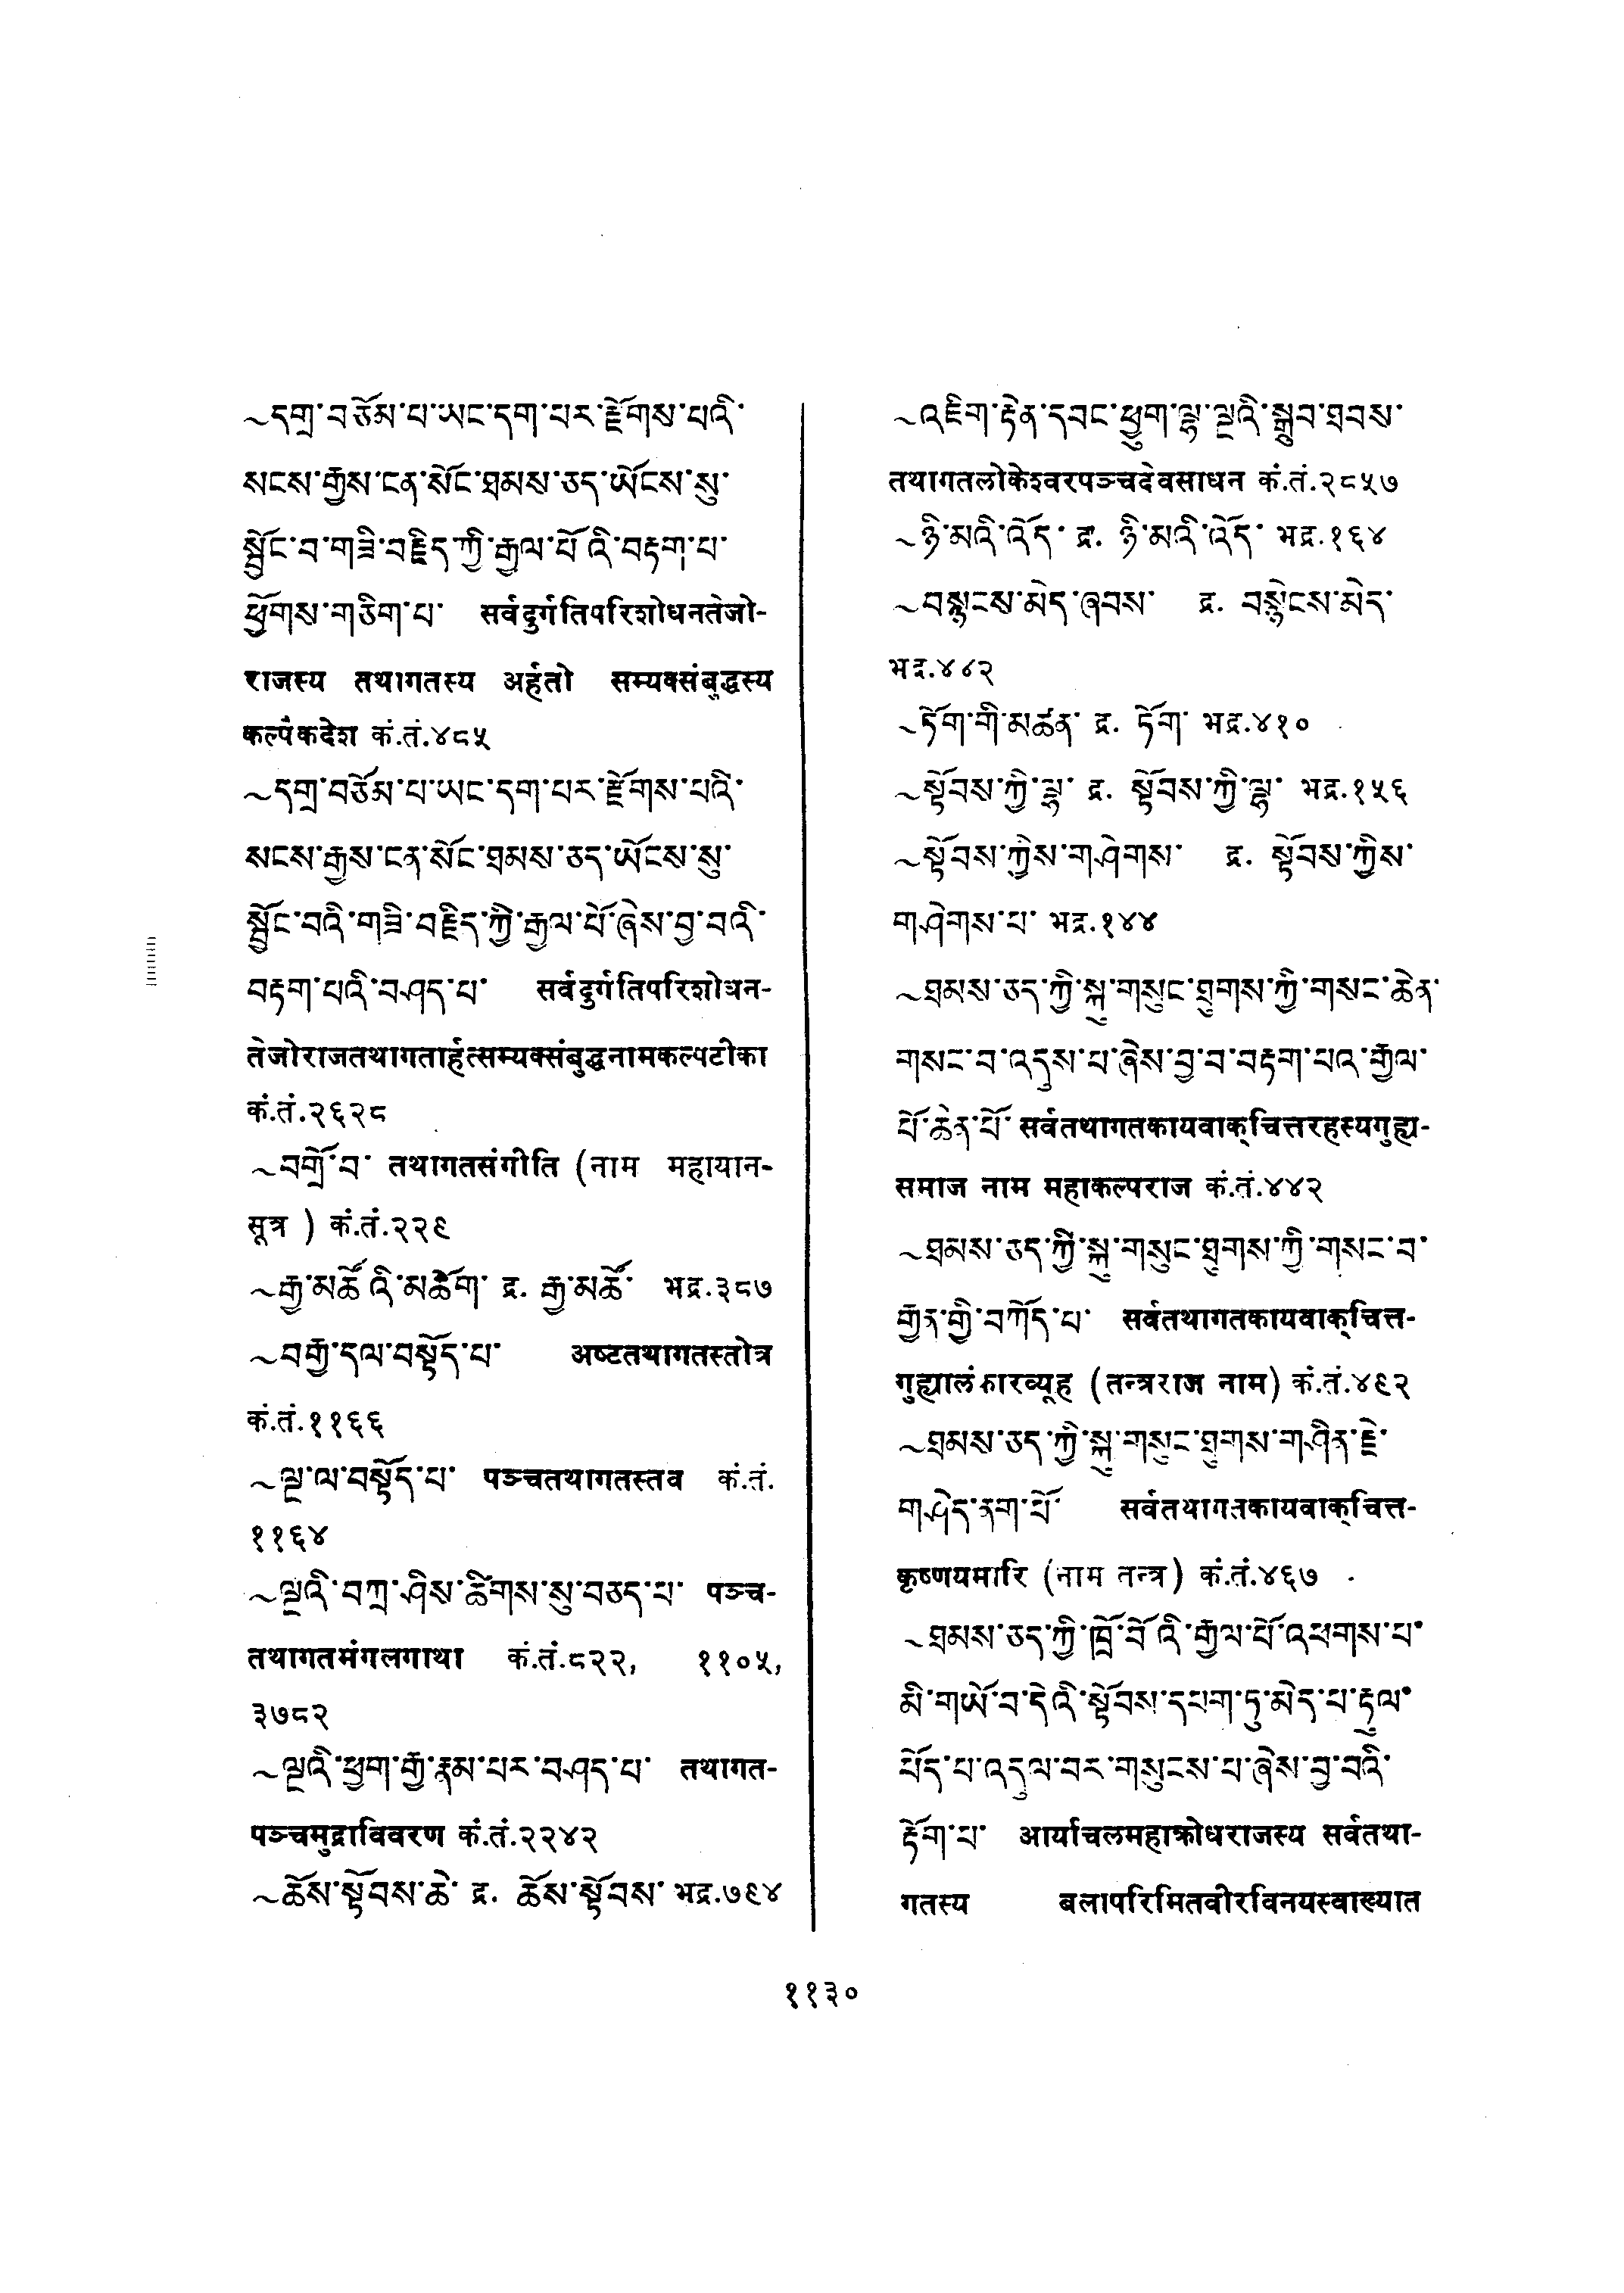 ~དགྲ་བཅོམ་པ་ཡང་དག་པར་རྫོགས་པའི་
སངས་རྒྱས་ངན་སོང་ཐམས་ཅད་ཡོངས་སུ་
སྦྱོང་བ་གཟི་བརྗིད་ཀྱི་རྒྱལ་པོའི་བརྟག་པ་
ཕྱོགས་གཅིག་པ་ सर्वदुर्गतिपरिशोधनतेजो-
राजस्य तथागतस्य अर्हतो सम्यक्संबुद्धस्य
कल्पैकदेश कं.तं.४८५
~དགྲ་བཅོམ་པ་ཡང་དག་པར་རྫོགས་པའི་
སངས་རྒྱས་ངན་སོང་ཐམས་ཅད་ཡོངས་སུ་
སྦྱོང་བའི་གཟི་བརྗིད་ཀྱི་རྒྱལ་པོ་ཞེས་བྱ་བའི་
བརྟག་པའི་བཤད་པ་ सर्वदुर्गतिपरिशोधन-
तेजोराजतथागतार्हत्सम्यक्संबुद्धनामकल्पटीका
कं.तं.२६२८
~བགྲོ་བ་ तथागतसंगीति (नाम महायान-
सूत्र ) कं.तं.२२९
~རྒྱ་མཚོའི་མཆོག་ द्र. རྒྱ་མཚོ་ भद्र.३८७
~བརྒྱད་ལ་བསྟོད་པ་ अष्टतथागतस्तोत्र
कं.तं.११६६
~ལྔ་ལ་བསྟོད་པ་ पञ्चतथागतस्तव कं.तं.
११६४
~ལྔའི་བཀྲ་ཤིས་ཚིགས་སུ་བཅད་པ་ पञ्च-
तथागतमंगलगाथा कं.तं.८२२, ११०५,
३७८२
~ལྔའི་ཕྱག་རྒྱ་རྣམ་པར་བཤད་པ་ तथागत-
पञ्चमुद्राविवरण कं.तं.२२४२
~ཆོས་སྟོབས་ཆེ་ द्र. ཆོས་སྟོབས་ भद्र.७९४
~འཇིག་རྟེན་དབང་ཕྱུག་ལྷ་ལྔའི་སྒྲུབ་ཐབས་
तथागतलोकेश्वरपञ्चदेवसाधन कं.तं.२८५७
~ཉི་མའི་འོད་ द्र. ཉི་མའི་འོད་ भद्र.१६४
~བསྙེངས་མེད་ཞབས་ द्र. བསྙེངས་མེད་
भद्र.४४२
~ཏོག་གི་མཚན་ द्र. ཏོག་ भद्र.४१०
~སྟོབས་ཀྱི་ལྷ་ द्र. སྟོབས་ཀྱི་ལྷ་ भद्र.१५६
~སྟོབས་ཀྱིས་གཤེགས་ द्र. སྟོབས་ཀྱིས་
གཤེགས་པ་ भद्र.१४४
~ཐམས་ཅད་ཀྱི་སྐུ་གསུང་ཐུགས་ཀྱི་གསང་ཆེན་
གསང་བ་འདུས་པ་ཞེས་བྱ་བ་བརྟག་པའ་རྒྱལ་
པོ་ཆེན་པོ་ सर्वतथागतकायवाक्चित्तरहस्यगुह्य-
समाज नाम महाकल्पराज कं.तं.४४२
~ཐམས་ཅད་ཀྱི་སྐུ་གསུང་ཐུགས་ཀྱི་གསང་བ་
རྒྱན་གྱི་བཀོད་པ་ सर्वतथागतकायवाक्चित्त-
गुह्यालंकारव्यूह (तन्त्रराज नाम) कं.तं.४९२
~ཐམས་ཅད་ཀྱི་སྐུ་གསུང་ཐུགས་གཤིན་རྗེ་
གཤེད་ནག་པོ་ सर्वतथागतकायवाक्चित्त-
कृष्णयमारि (नाम तन्त्र) कं.तं.४६७
~ཐམས་ཅད་ཀྱི་ཁྲོ་བོའི་རྒྱལ་པོ་འཕགས་པ་
མི་གཡོ་བ་དེའི་སྟོབས་དཔག་ཏུ་མེད་པ་རྟུལ་
ཕོད་པ་འདུལ་བར་གསུངས་པ་ཞེས་བྱ་བའི་
རྟོག་པ་ आर्याचलमहाक्रोधराजस्य सर्वतथा-
गतस्य बलापरिमितवीरविनयस्वाख्यात
११३०